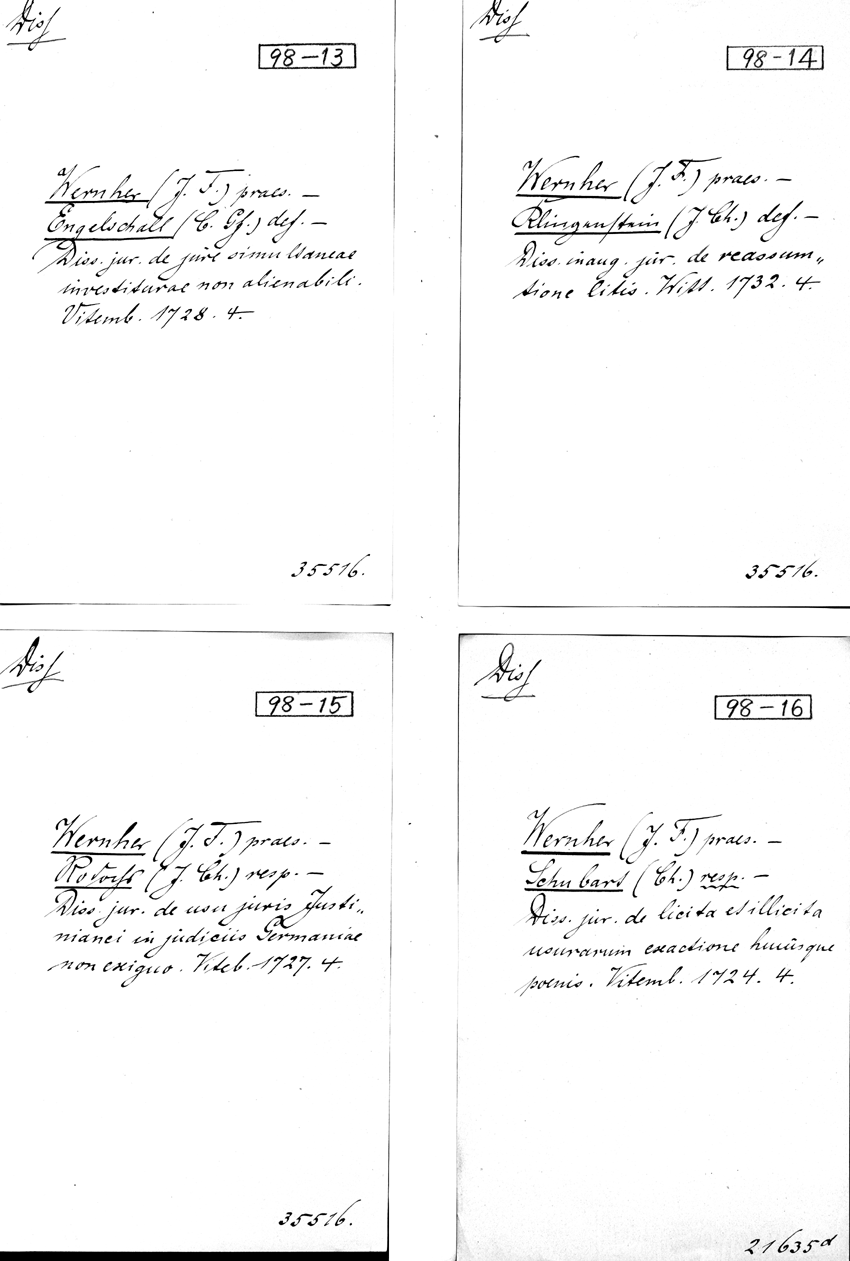 Diss
98-13
Wernher (J. F.) praes. —
Engelschall (C. Gf.) def. —
Diss. jur. de jure simultaneae
investiturae non alienabili.
Vitemb. 1728. 4.
35516.
Diss
98-14
Wernher (J. F.) praes. —
Klingenstein (J. Ch.) def. —
Diss. inaug. jur. de reassum„
tione litis. Witt. 1732. 4.
35516.
Diss
98-15
Wernher (J. F.) praes. —
(J. Ch.) resp. —
Diss. jur. de usu juris Justi„
nianei in judiciis Germaniae
non exiguo. Viteb. 1727. 4.
35516.
Diss
98-16
Wernher (J. F.) praes. —
Schubart (Ch.) resp. —
Diss. jur. de licita et illicita
usurarum exactione hujusque
poenis. Vitemb. 1724. 4.
21635d